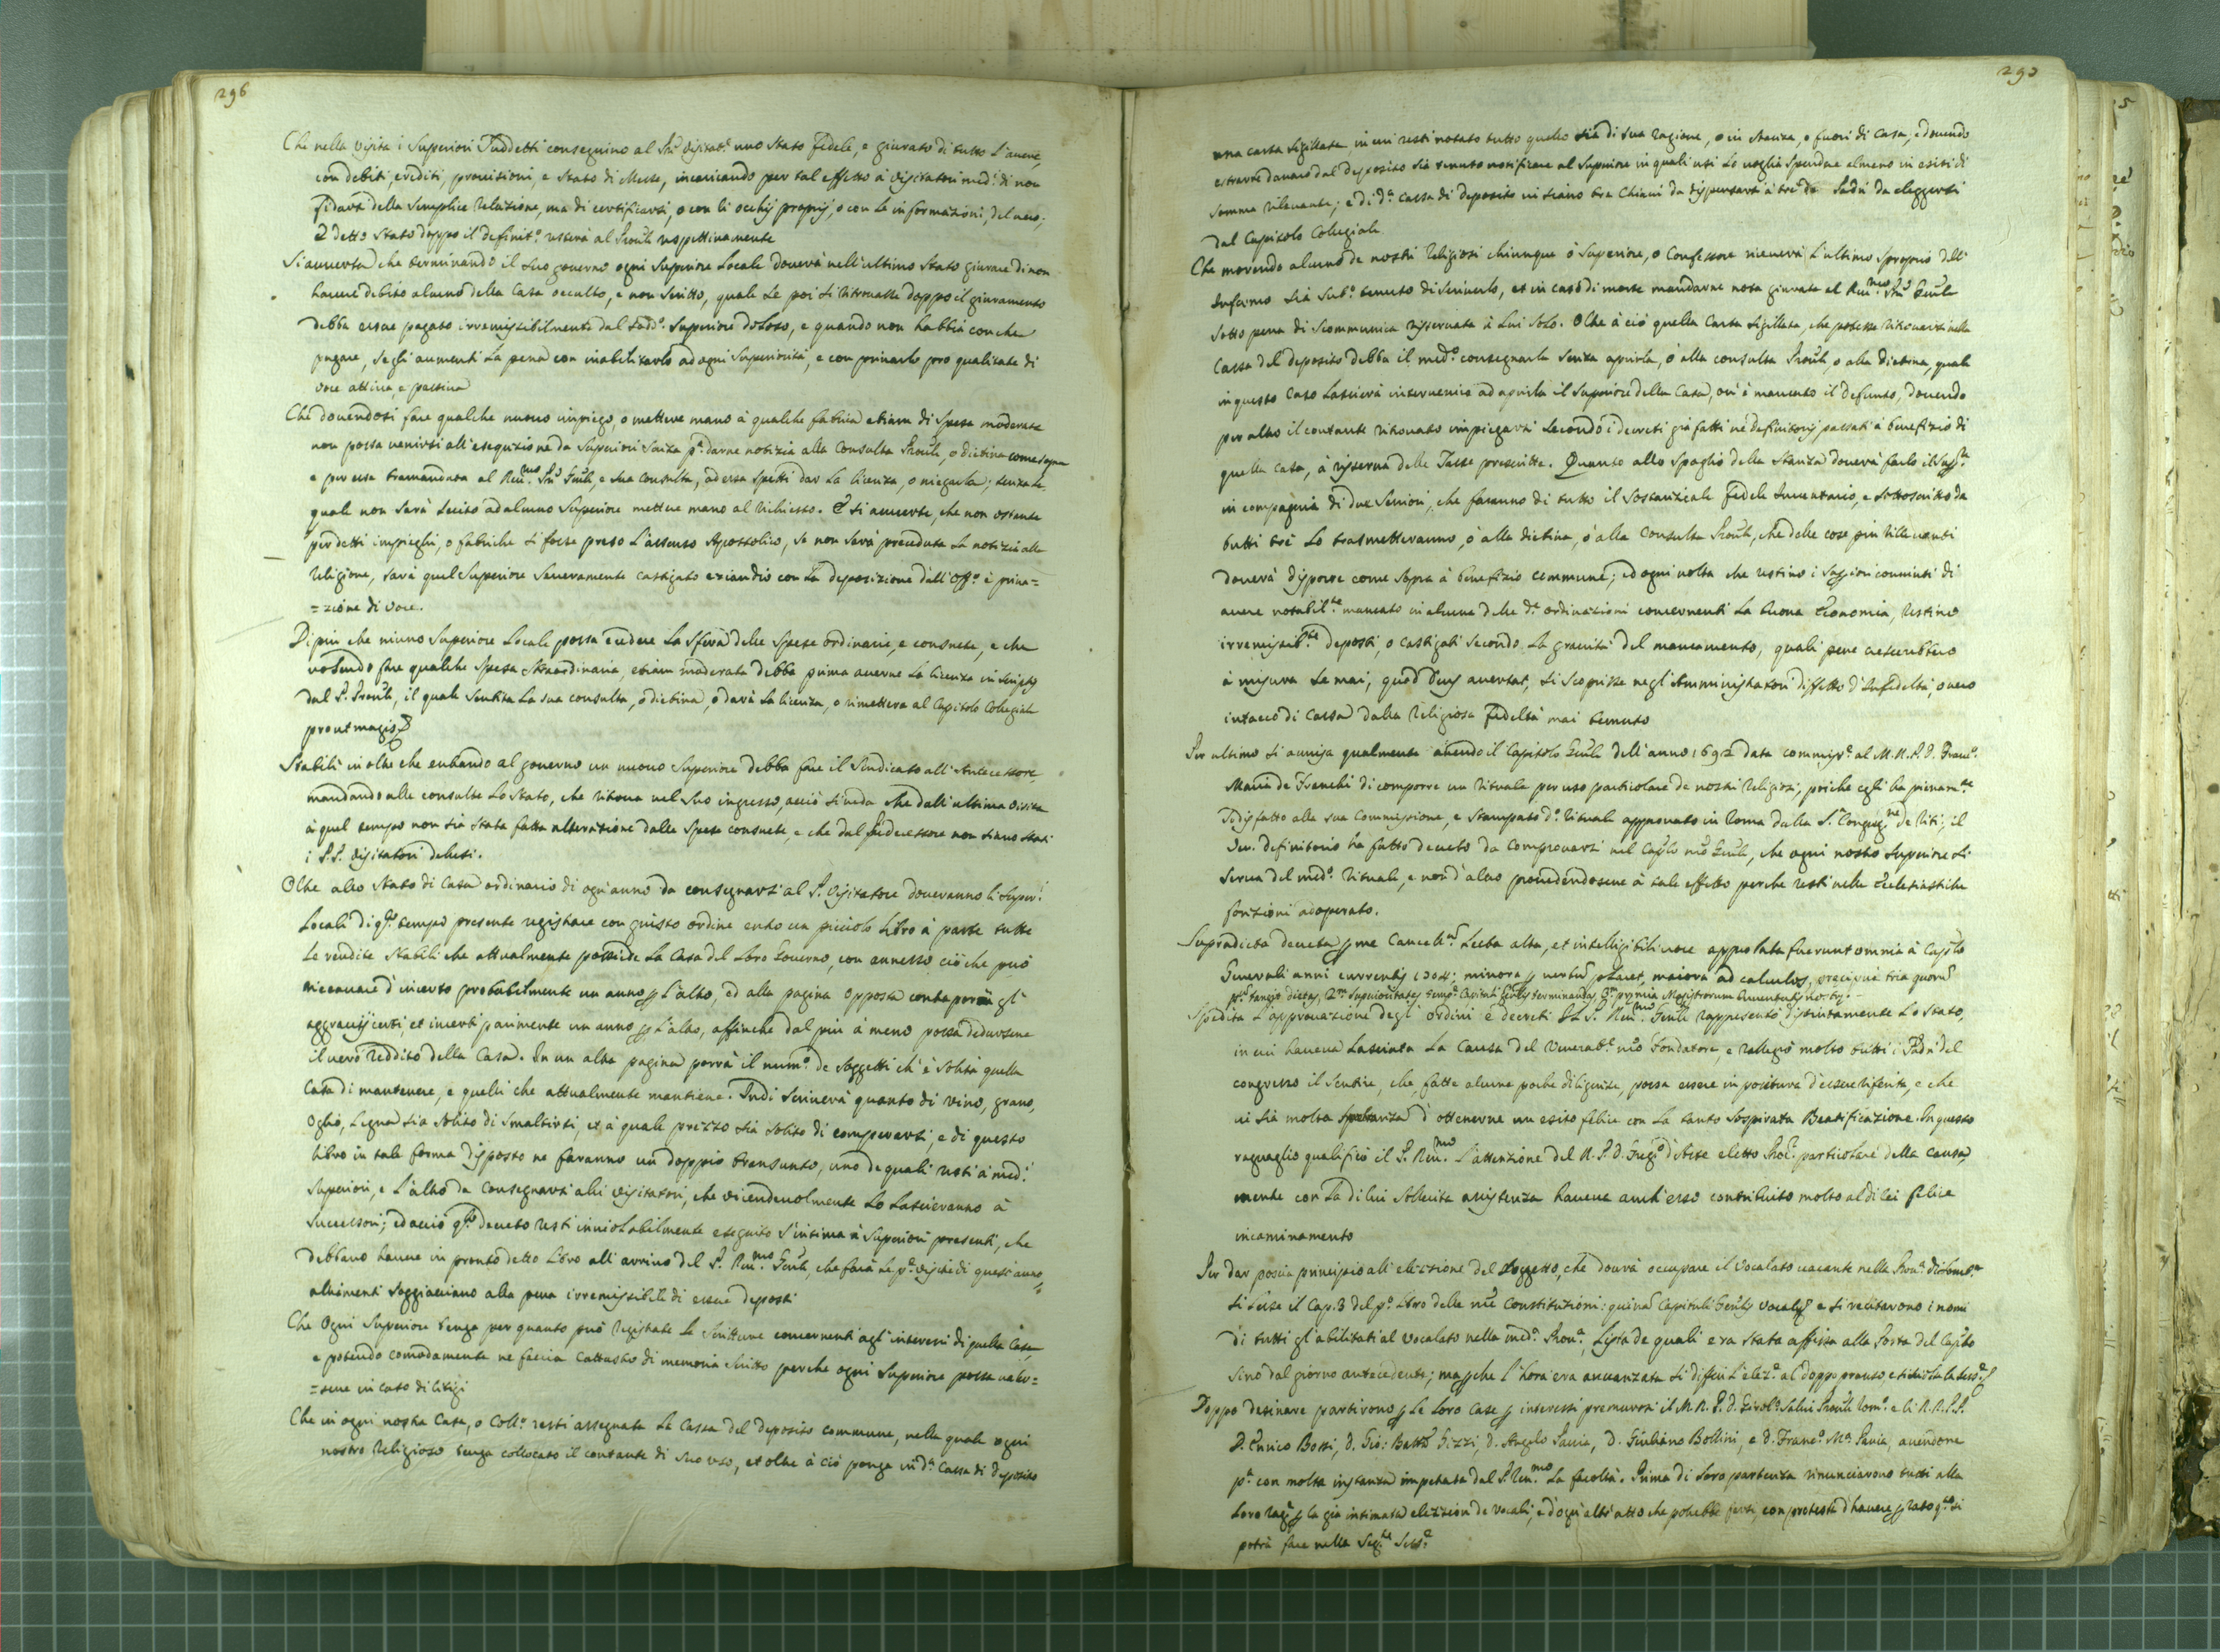 296
Che nella visita i Superiori suddetti conseguino al Pre Visitat.e uno stato fedele, e giurato di tutto l'avere,
con debiti, crediti, provisioni, e stato di Messe, incaricando per tal effetto à Visitatori med.i di non
fidarsi della semplice relazione, ma di certificarsi, o con li occhij proprij, o con le informazioni, del vero;
E detto stato doppo il definit.o resterà al Prõule respettivamente
Si avverta che terminando il suo governo ogni Superiore Locale doverà nell'ultimo stato giurare di non
havere debito alcuno della Casa occulto, e non scritto, quale se poi si ritrovasse doppo il giuramento
debba esser pagato irremissibilmente dal sud.o Superiore doloso, e quando non habbia con che
pagare, segli aumenti la pena con inabilitarlo ad ogni Superiorità, e con privarlo pro qualitate di
voce attiva, e passiva
Che dovendosi fare qualche nuovo impiego, o mettere mano à qualche fabrica etiam di spesa moderata
non possa venirsi all'esequizione da Superiori senza p.a darne notizia alla Consulta Prõule, o dietina come sopra
e per essa tramandata al Reu.mo Pre Gñle, e sua Consulta, ad essa spetti dar la licenza, o niegarla; senza la
quale non sarà lecito ad alcuno Superiore mettere mano al richiesto. E si avverte, che non ostante
per detti impieghi, o fabriche si fosse preso l'assenso Apostolico, se non sarà preceduta la notizia alla
Religione, sarà quel Superiore severamente castigato eziandio con la deposizione dall'Off.o è priva=
=zione di voce.
Di più che niuno Superiore Locale possa eccedere la sfera delle spese ordinarie, e consuete, e che
volendo fare qualche spesa straordinaria, etiam moderata debba prima averne la licenza in scriptis
dal P. Prõule, il quale sentita la sua consulta, o dietina, o darà la licenza, o rimetterà al Capitolo Colegiale
prout magis &
Stabilì inoltre che entrando al governo un nuovo Superiore debba fare il Sindicato all'Antecessore,
mandando alle consulte lo stato, che ritrova nel suo ingresso, acciò si veda che dall'ultima visita
à quel tempo non sia stata fatta alterazione dalle spese consuete, e che dal predecessore non siano stati
i P.P. Visitatori delusi.
Oltre altro stato di Casa ordinario di ogn'anno da consegnarsi al P. Visitatore doveranno li Super.i
Locali di q.to tempo presente registrare con giusto ordine entro un picciolo libro à parte tutte
le rendite stabili che attualmente possiede la Casa del loro Governo, con annesso ciò che può
riceavare d'incerto probabilmente un anno p l'altro, ed alla pagina opposta contraporrà gli
aggravij certi, et incerti parimente un anno p l'altro, affinche dal più à meno possa dedursene
il vero reddito della Casa. In un altra pagina porrà il num.o de soggetti ch'è solita quella
Casa di mantenere, e quelli che attualmente mantiene. Indi scriverà quanto di vino, grano,
Oglio, legna sia solito di smaltirsi, et à quale prezzo sia solito di comperarsi, e di questo
libro in tale forma disposto ne faranno un doppio transunto, uno de quali resti à med.i
Superiori, e l'altro da consegnarsi alli Visitatori, che vicendevolmente lo lascieranno à
successori; ed acciò q.to decreto resti inviolabilmente eseguito s'intima à Superiori presenti, che
debbano havere in pronto detto libro all'arrivo del P. Reu.mo Gñle, che farà le p.e visite di quest'anno,
altrimenti soggiacciano alla pena irremissibile di essere deposti
Che ogni Superiore tenga per quanto può registrate le scritture concernenti agl'interessi di quella Casa,
e potendo comodamente ne faccia Cattastro di memoria scritto perche ogni Superiore possa valer=
=sene in caso di litigi
Che in ogni nostra Casa, o Coll.o resti assegnata la Cassa del deposito commune, nella quale ogni
nostro Religioso tenga collocato il contante di suo uso, et oltre à ciò ponga in d.a Cassa di deposito
297
una carta sigillata, in cui resti notato tutto quello sia di sua ragione, o in stanza, o fuori di Casa, e dovendo
estrarre danaro dal deposito sia tenuto notificare al Superiore in quali usi lo voglia spendere almeno in esiti di
somma rilevante; e di d.a Cassa di deposito vi siano tre chiavi da dispensarsi à trè de Padri da eleggersi
dal Capitolo Colegiale
Che morendo alcuno de nostri Religiosi chiunque ò Superiore, o Confessore riceverà l'ultimo sproprio dell'
Infermo sia sub.o tenuto di scriverlo, et in caso di morte mandarne nota giurata al Reu.mo Pre Gñle
sotto pena di scommunica risservata à lui solo. Oltre à ciò quella Carta sigillata, che potesse ritrovarsi nella
Cassa del deposito debba il med.o consegnarla senza aprirla, ò alla consulta Prõule, o alla dietina, quale
in questo caso lascierà intervenire ad aprirla il Superiore della Casa, ov'è mancato il defunto, dovendo
per altro il contante ritrovato impiegarsi secondo i decreti già fatti ne definitorij passati à benefizio di
quella Casa, à risserva delle Tasse prescritte. Quanto allo spoglio della stanza doverà farlo il Sup.re
in compagnia di due Seniori, che faranno di tutto il sostanziale fedele Inventario, e sottoscritto da
tutti trè lo trasmetteranno, ò alla dietina, ò alla consulta Prõule, che delle cose più rillevanti
doverà disporre come sopra à benefizio commune; ed ogni volta che restino i Superiori convinti di
avere notabil.te mancato in alcune delle d.e ordinazioni concernenti la buona Economia, restino
irremisib.te deposti, o castigati secondo la gravità del mancamento, quali pene crescerebbero
à misura se mai, quod Deus avertat, si scoprisse negl'Amministratori diffetto d'Infedeltà, o vero
intacco di Cassa dalla Religiosa fedeltà mai temuto
Per ultimo si avvisa qualmente avendo il Capitolo Gñle dell'anno 1692 data commiss.e al M.R.P.D. Franc.o
Maria de Franchi di comporre un Rituale per uso particolare de nostri Religiosi, poiche egli ha pienam.te
sodisfatto alla sua Commissione, e stampato d.o Rituale approvato in Roma dalla S. Congreg.ne de Riti, il
Ven. definitorio ha fatto decreto da comprovarsi nel Caplo nro Gñle, che ogni nostro Superiore si
serva del med.o Rituale, e non d'altro provedendosene à tale effetto perche resti nelle Ecclesiastiche
fonzioni adoperato.
Supradicta decreta p me Cancell.m lecta alta, et intelligibili voce approbata fuerunt omnia à Caplo
Generali anni currentis 1704; minora p verbum placet, maiora ad calculos, precipuè tria quorum
p.m tangit dietas, 2.m superioritates temp.e Capituli Gñlis terminandas, 3.m premia Magistrorum Iuventutis nostre
Spedita l'approvazione degl'ordini e decreti il P. Reu.mo Gñle rappresentò distintamente lo stato,
in cui haveva lasciata la Causa del Venerab.e nro Fondatore, e rallegrò molto tutti i Padri del
congresso il sentire, che, fatte alcune poche diligenze, possa essere in positura d'esser riferita, e che
vi sia molta speranza d'ottenerne un esito felice con la tanto sospirata Beatificazione. In questo
raguaglio qualificò il P. Reu.mo l'attenzione del R.P.D. Greg.o d'Aste eletto Proc.e particolare della causa,
mente con la di lui sollecita assistenza haveva anch'esso contribuito molto al di lei felice
incaminamento
Per dar poscia principio all'elezzione del soggetto, che dovrà occupare il Vocalato vacante nella Prov.a di Lomb.a
si lesse il Cap. 3 del p.o libro delle nre Constitutioni: quinam Capituli Gñlis Vocales e si recitarono i nomi
di tutti gl'abilitati al vocalato nella med.a Prov.a, lista de quali era stata affissa alla Porta del Caplo
sino dal giorno antecedente; ma pche l'hora era avvanzata si differì l'elez.e al doppo pranso, e si chiuse la sess.e
Doppo desinare partirono p le loro case p interessi premurosi il M.R.P.D. Girol.o Salvi Prõule Rom.o e li R.R.P.P.
D. Enrico Bossi, D. Gio: Batta Gizzi, D. Angelo Pavia, D. Giuliano Bollini, e D. Franc.o M.a Pavia, avendone
p.a con molta instanza impetrata dal P. Reu.mo la facoltà. Prima di loro partenza rinunciarono tutti alla
loro rag.e p la già intimata elezzion de vocali, e d'ogn'altr'atto che potrebbe farsi, con protesta d'havere p rato q.to si
potrà fare nella Seg.te Sess.e